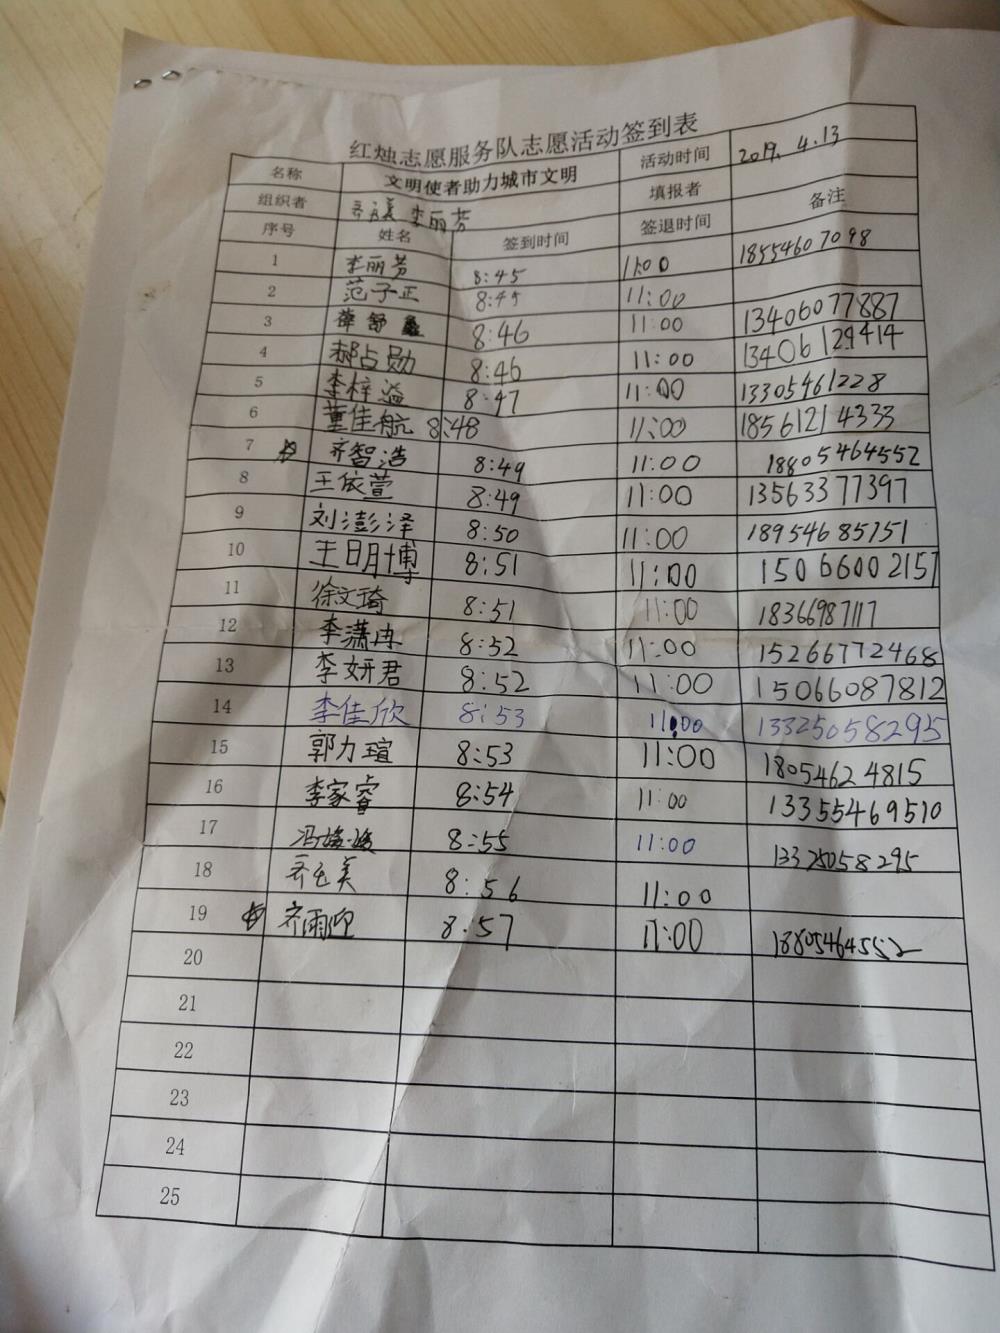 红烛志愿服务队志愿活动签到表
名称 文明使者助力城市文明 活动时间 2019.4.13
组织者 齐玉美 李丽芳 填报者
序号 姓名 签到时间 签退时间 备注
1 李丽芳 8:45 11:00 18554607098
2 范子正 8:45 11:00
3 薛舒鑫 8:46 11:00 13406077887
4 郝占勋 8:46 11:00 13406129414
5 李梓溢 8:47 11:00 13305461228
6 董佳航 8:48 11:00 18561214333
7 齐智浩 8:49 11:00 18805464552
8 王依萱 8:49 11:00 13563377397
9 刘澎泽 8:50 11:00 18954685751
10 王明博 8:51 11:00 15066002157
11 徐文琦 8:51 11:00 18366987117
12 李潇冉 8:52 11:00 15266772468
13 李妍君 8:52 11:00 15066087812
14 李佳欣 8:53 11:00 13325058295
15 郭力瑄 8:53 11:00 18054624815
16 李家睿 8:54 11:00 13355469510
17 8:55 11:00 13325058295
18 齐玉美 8:56 11:00
19 齐雨迎 8:57 11:00 18805464552
20
21
22
23
24
25